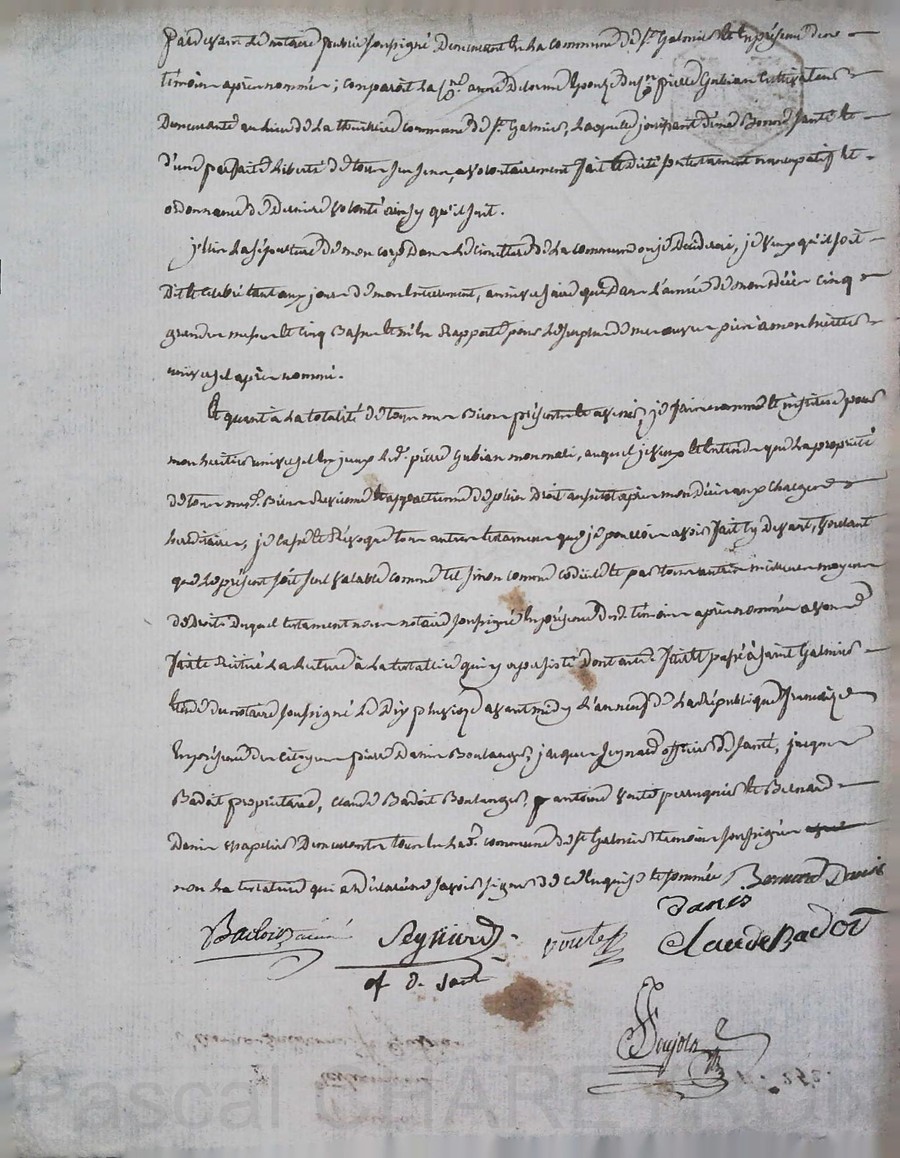 Pardevant le notaire public soussigné Demeurant en la commune de st. Galmier et en présence des
témoins après nommés; comparoit la Cne. anne Delorme Epouze du Cn. pierre Gubian Cultivateur
Demeurante au lieu de la commune de st. Galmier, Laquelle jouissant d'une Bonne santé et
d'une parfaite Liberté de tous ses sens, a volontairement fait et dicté son testament nuncupatif et
ordonnance de Derniere volonté ainsy qu'il suit.
j'Elis la sépulture de mon corps Dans le Cimetiere de la commune ou je décéderai, je veux qu'il soit
Dit et célébré tant aux jours de mon Enterrement, anniversaire que Dans l'année de mon décès cinq
grandes messes et cinq Basses et m'en Rapporte pour le surplus de mes œuvres pies a mon héritier
universel après nommé.
Et quant à la totalité de tous mes Biens présents et avenir, je fais nomme et institue pour
mon héritier universel led. pierre Gubian mon mari, auquel je veux et Entends que la propriété
de tous mesd. Biens et appartienne de plein Droit aussitot après mon décès aux charges
héréditaires, je casse et Révoque tous autres testaments que je pourrois avoir fait cy Devant, voulant
que le présent soit seul valable comme tel sinon comme codicile et par tous autres meilleurs moyens
de Droit, Duquel testament nous notaire soussigné En présence desd. témoins après nommés avons
fait et Réitéré la lecture à la testatrice qui y a persisté Dont acte. fait et passé à Saint Galmier
Etude du notaire soussigné le Dix pluviose avant midy l'an neuf de la République française
En présence des Citoyens pierre Danis Boulanger, jacques Seynard officier de santé, jacques
Badoit propriétaire, Claude Badoit Boulanger, antoine Voute perruquier et Bernard
Danis chapelier Demeurants tous En lad. commune de st Galmier témoins soussignés
non la testatrice qui a déclaré ne savoir signer de ce Enquise et sommée Bernard Danis
Danis
Badoit ainé Seynard voute Claude Badoit
of. d. santé
Pujola
Pascal CHARE